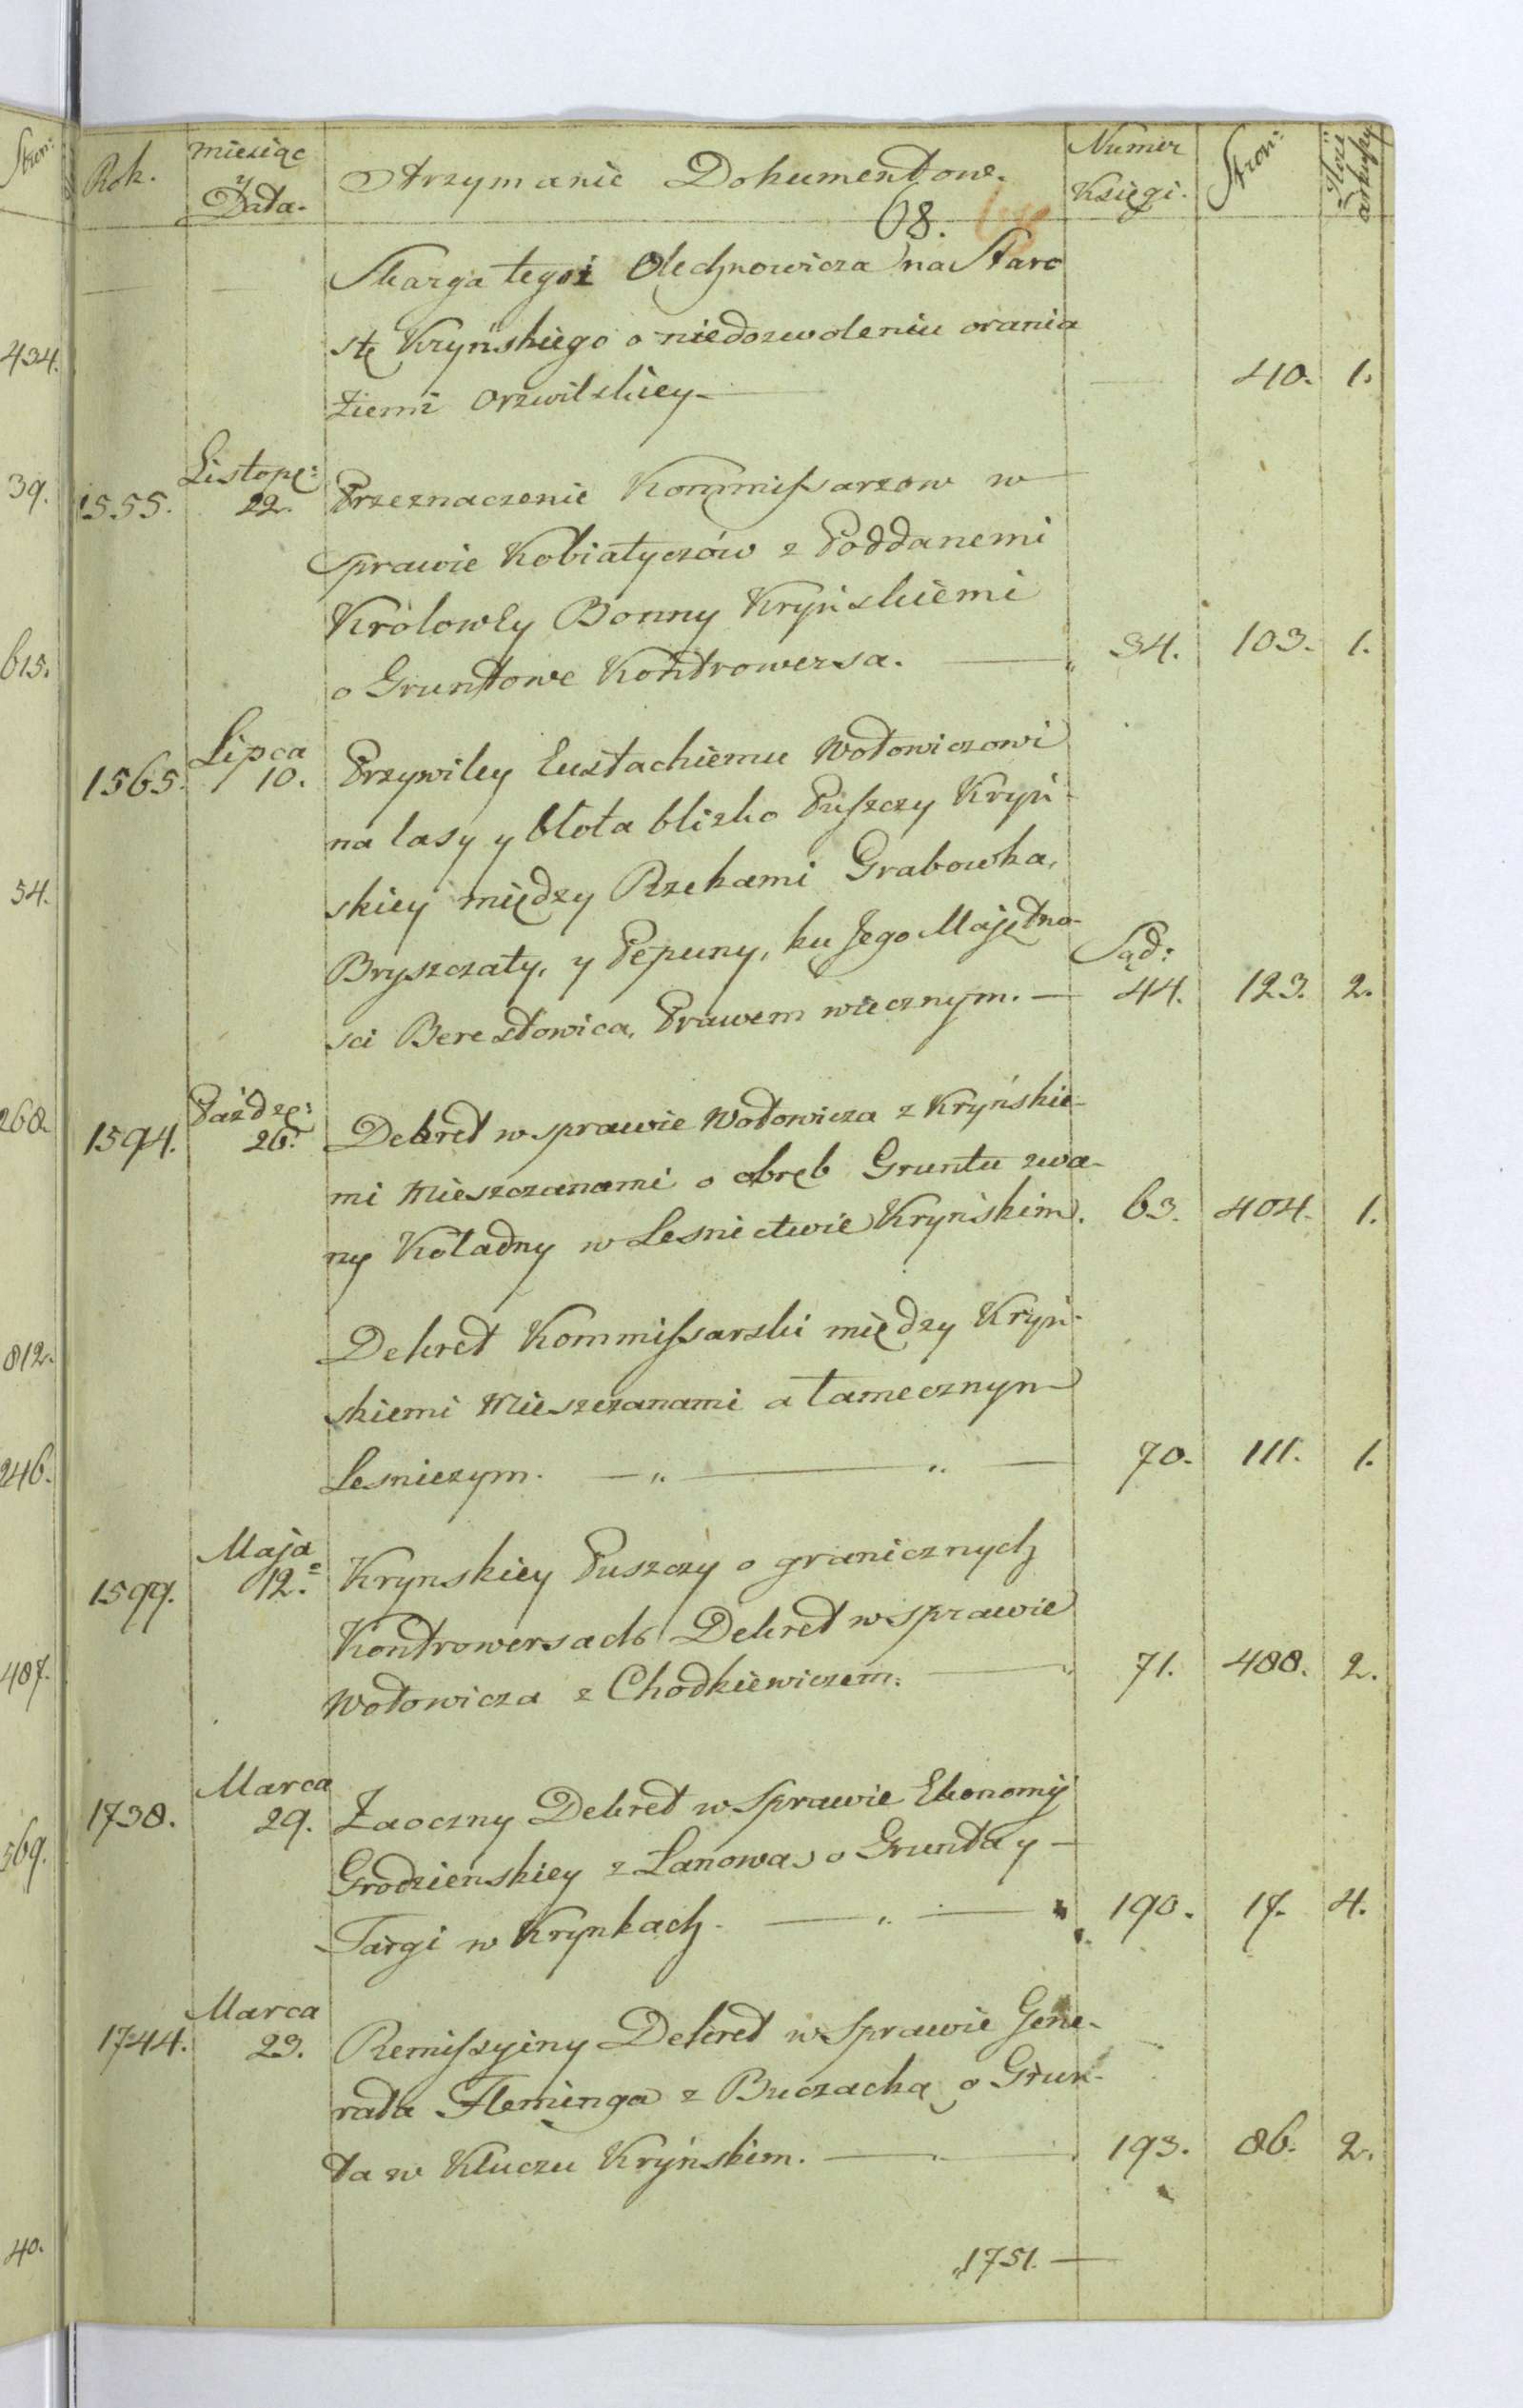 Stron:
434.
39.
615.
54.
268.
812.
246.
487.
569.
40.
Rok.
miesiąc
y
Data.
Otrzymanie Dokumentow.
Numer
Księgi.
Stron:
Ilość
arkuszy
68.
Skarga tegoż Olechnowicza na Staro
stę Kryńskiego o niedozwoleniu orania
Ziemi Orzwilskiey 40. 1.
1555. Listopę:
22. Przeznaczenie Kommissarzow w
sprawie Kobiałyczów z Poddanemi
Królowey Bonny Kryńskiemi
o Gruntowe Kontrowersa. 34. 103. 1.
1565. Lipca
10. Przywiley Eustachiemu Wołowiczowi
na lasy y błota blizko Puszczy Kryń-
skiey między Rzekami Grabowka,
Bryszczaty, y Pepuny, ku Jego Majętno-
sci Berestowica, Prawem wiecznym. Sąd:
44. 123. 2.
1594. Paździe:
26. Dekret w sprawie Wołowicza z Kryńskie-
mi Mieszczanami o obręb Gruntu zwa-
ny Koladny w Lesnictwie Kryńskim. 63. 404. 1.
Dekret Kommissarski między Kryń-
skiemi Mieszczanami a tamecznym
Lesniczym. 70. 111. 1.
1599. Maja
12. Krynskiey Puszczy o granicznych
Kontrowersach Dekret w sprawie
Wołowicza z Chodkiewiczem. 71. 488. 2.
1738. Marca
29. Zaoczny Dekret w Sprawie Ekonomij
Grodzienskiey z Lanową o Grunta y
Targi w Krynkach. 190. 17. 4.
1744. Marca
23. Remissyiny Dekret w Sprawie Gene-
rała Fleminga z Buczacką o Grun-
ta w Kluczu Kryńskim. 193. 86. 2.
1751.